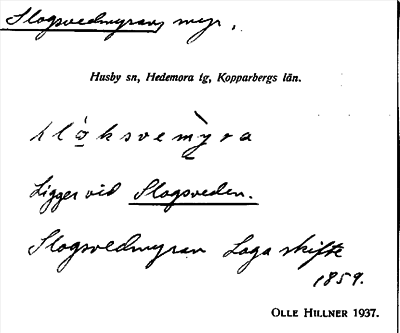 Slogsvedmyran, myr.
Husby sn, Hedemora tg, Kopparbergs län.
slo̱ksvemỳ̱ra
Ligger vid Slogsveden.
Slogsvedmyran Laga skifte
1859.
OLLE HILLNER 1937.